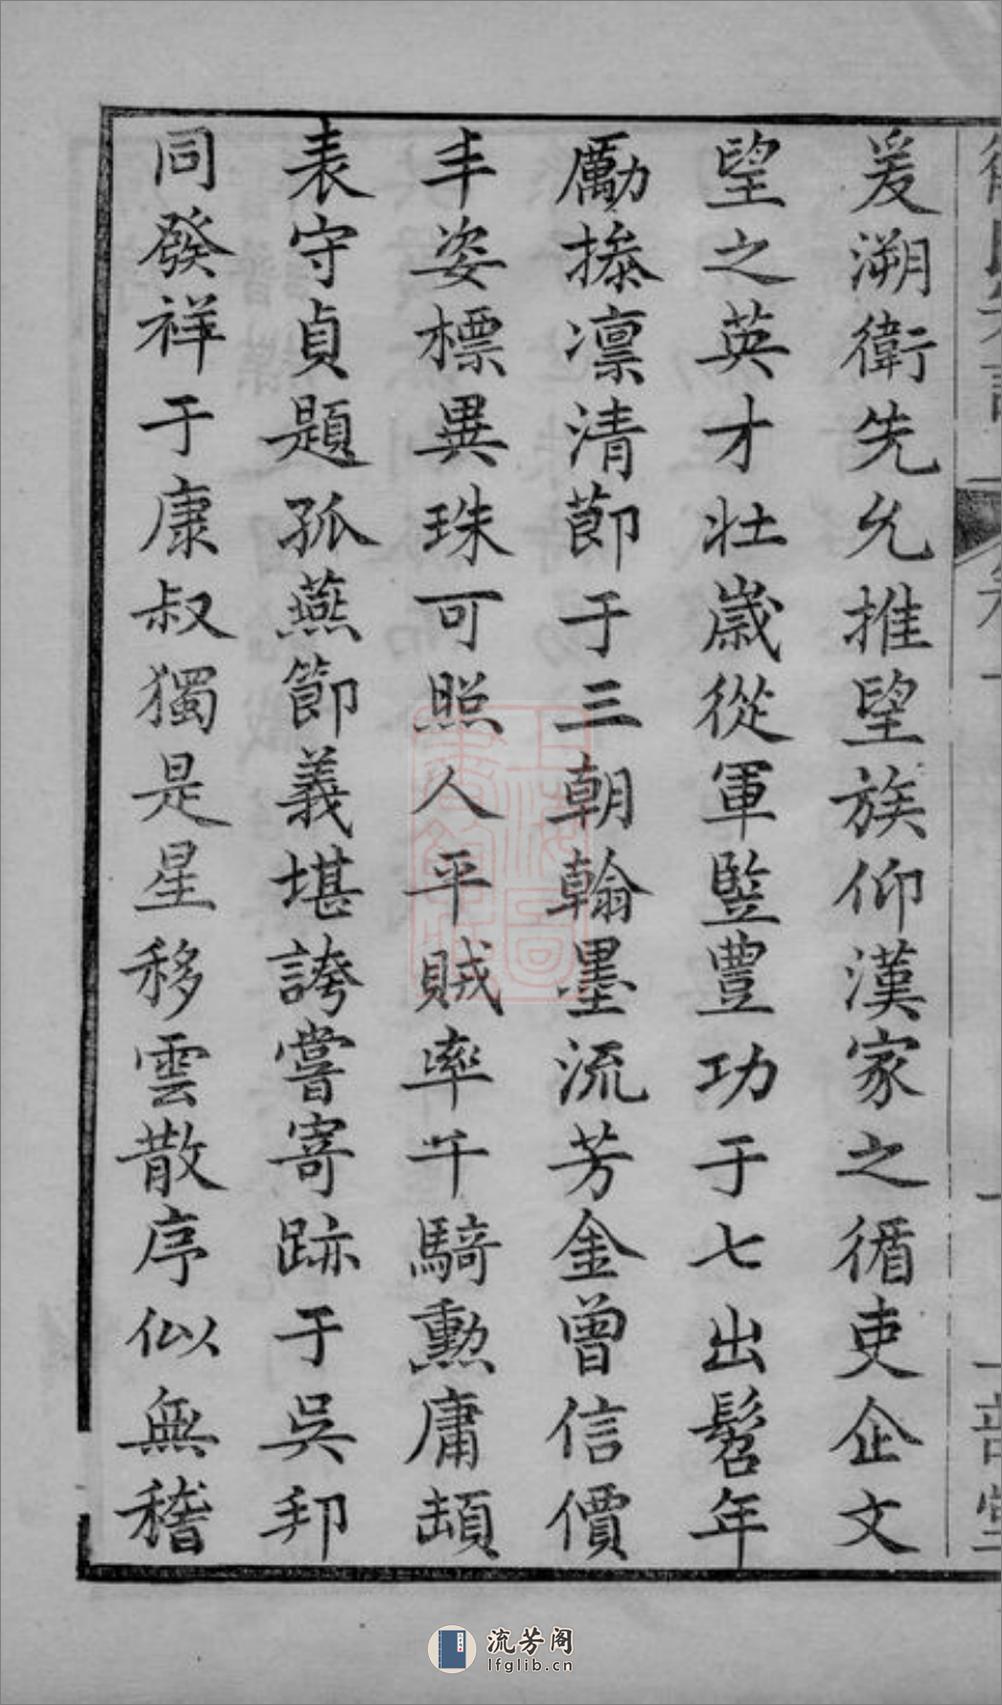 爰溯衛先允推望族仰漢家之循吏企文
望之英才壯歲從軍豎豐功于七出髫年
勵摻凜清節于三朝翰墨流芳金曾信價
丰姿標異珠可照人平賊率千騎勳庸頡
表守貞題孤燕節義堪誇嘗寄跡于吳邦
同發祥于康叔獨是星移雲散序似無稽
流芳阁
lfglib.cn